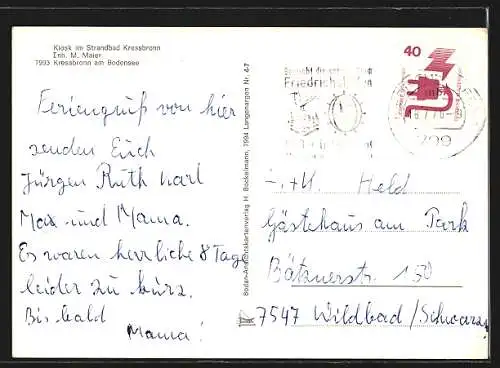 Kiosk im Strandbad Kressbronn
Inh. M. Maier
7993 Kressbronn am Bodensee
Feriengruß von hier
senden Euch
Jürgen Ruth Karl
Max und Mama.
Es waren herrliche 8 Tage
leider zu kurz.
Bis bald
Mama!
Boden-Ansichtskartenverlag H. Bockelmann, 7994 Langenargen Nr. 4-7
40
Friedrichshafen
Held
Gästehaus am Park
Bätznerstr. 150
7547 Wildbad/Schwarzw